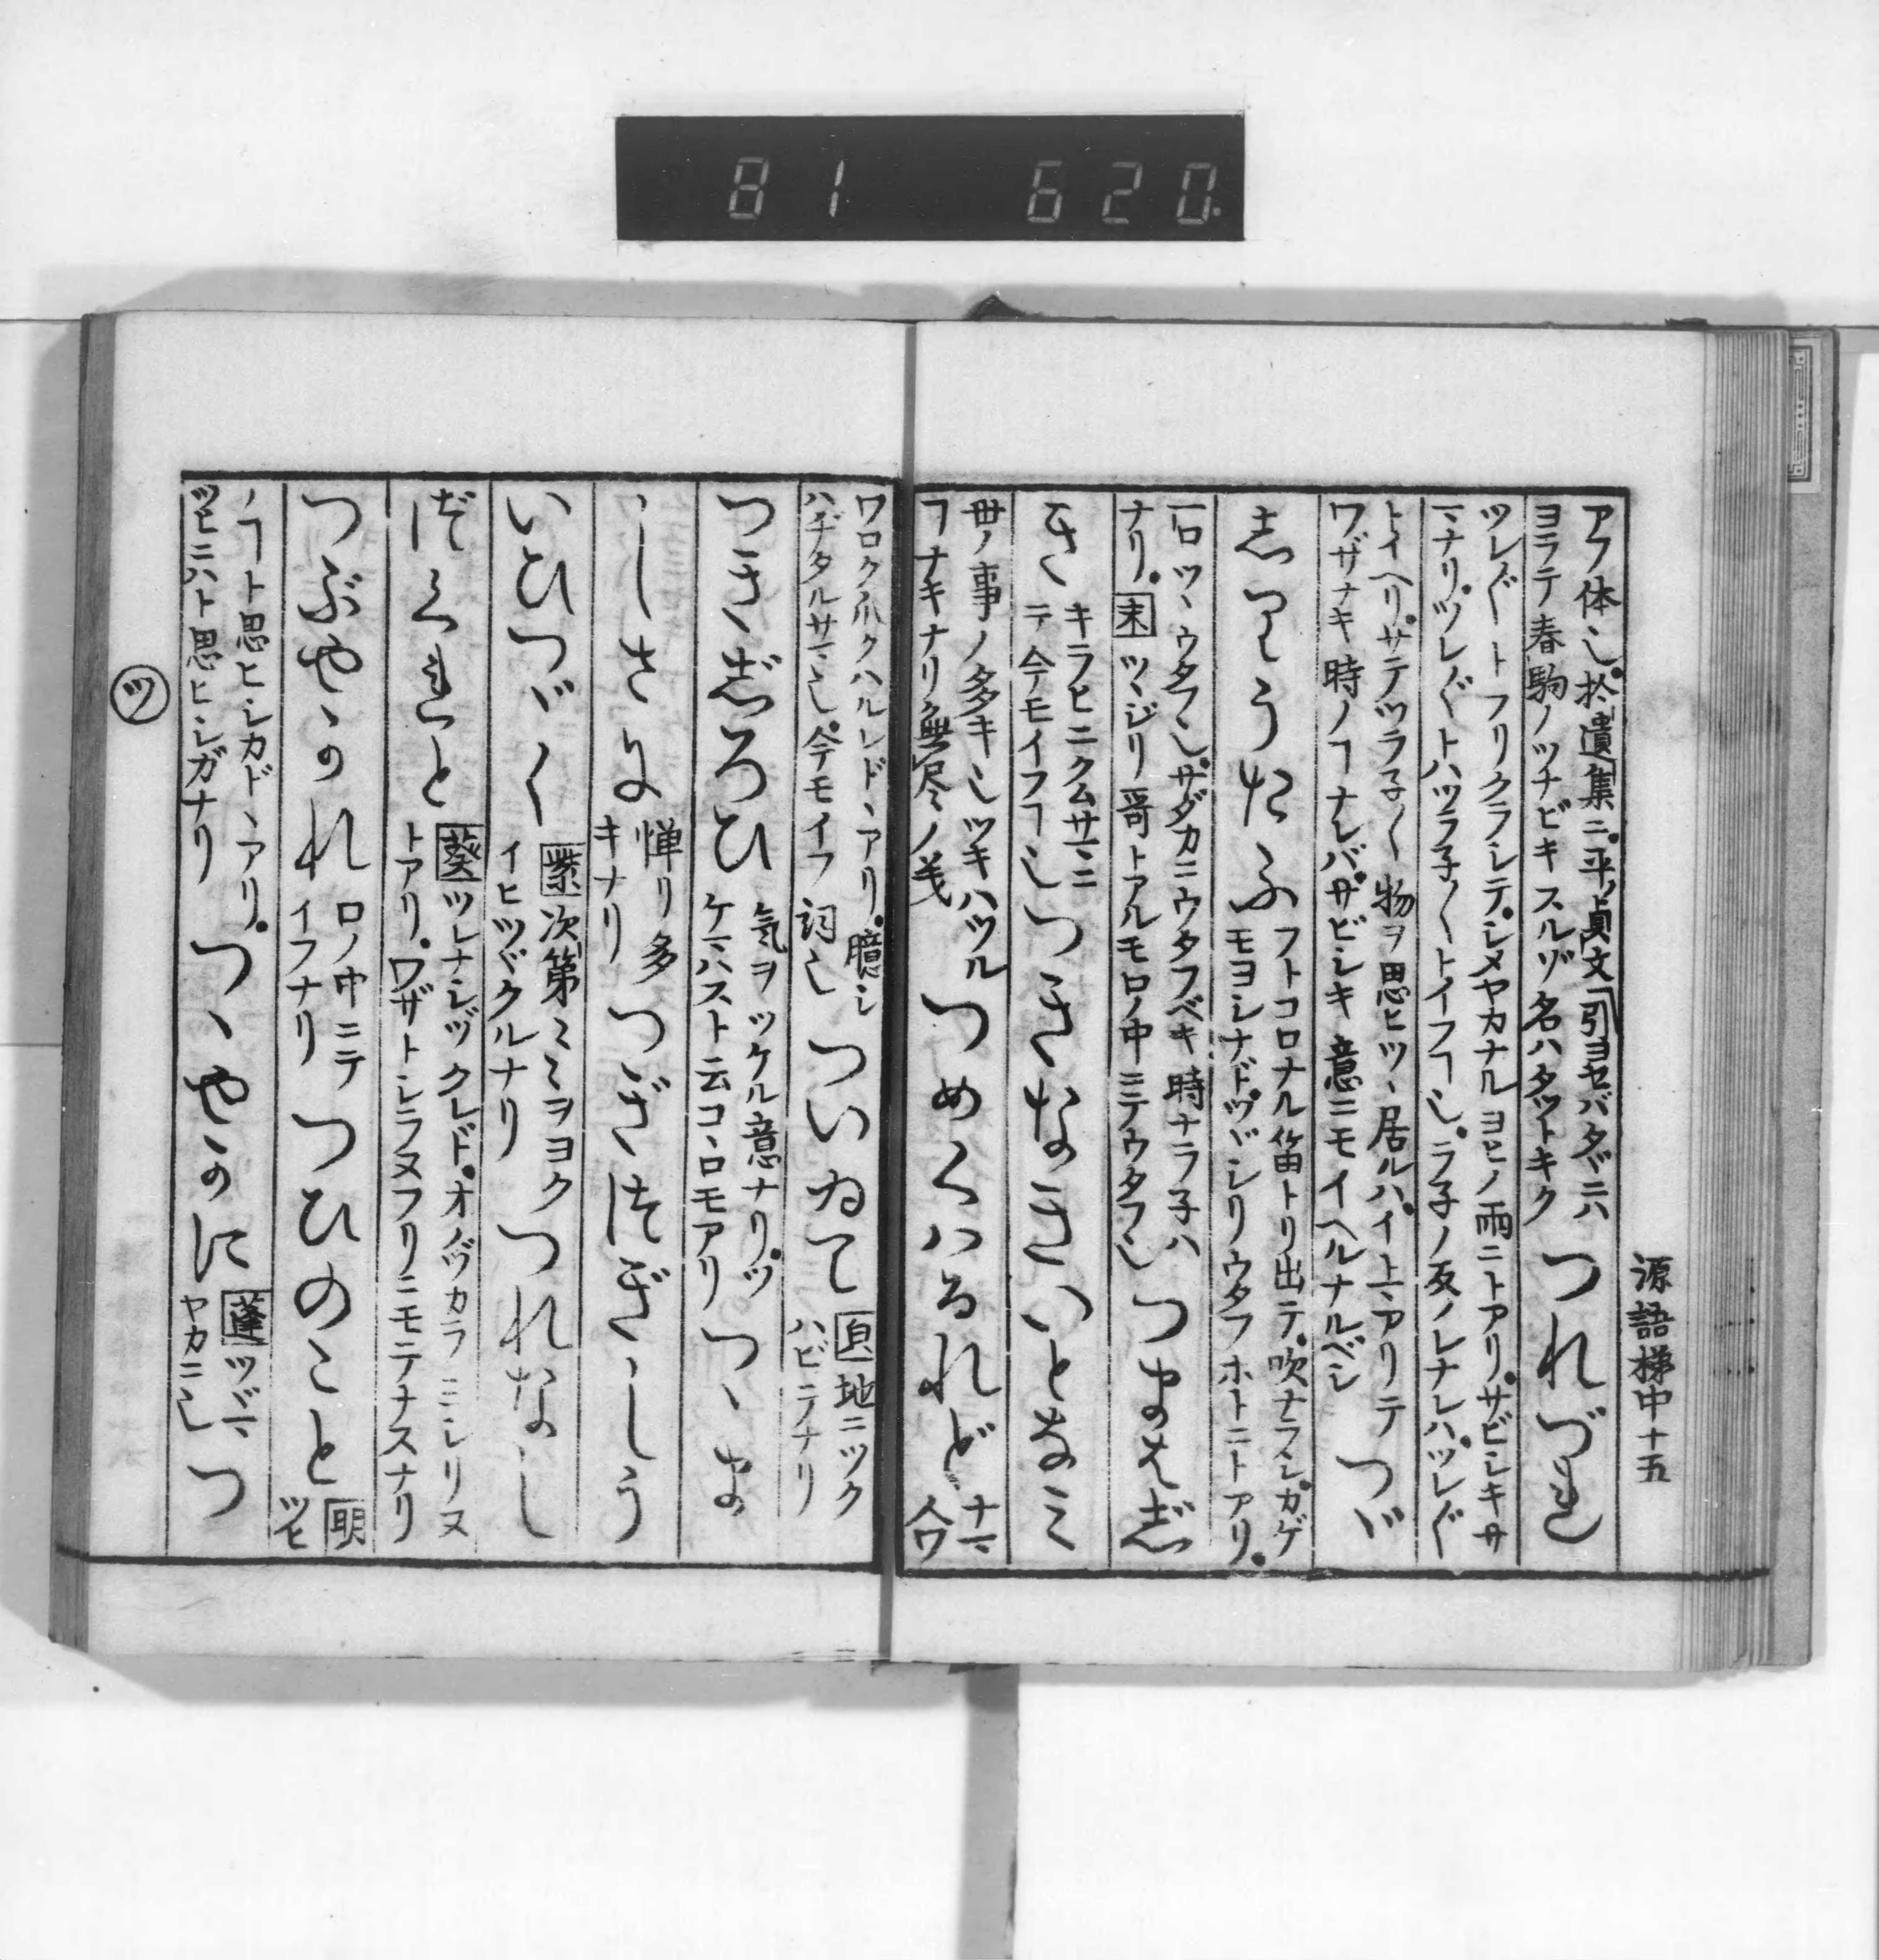 81 620
源語梯中十五
アフ体也。拾遺集ニ。平ノ貞文「引ヨセバタヾニハ
ヨラテ春駒ノツナビキスルゾ名ハタツトキク
つれづれ
ツレ〴〵トフリクラシテ。シメヤカナルヨヒノ雨ニトアリ。サビシキサ
マナリ。ツレ〴〵トハツラ子〳〵トイフヿ也。ラ子ノ反ノレナレハ。ツレ〴〵
トイヘリ。サテツラ子〳〵物ヲ思ヒツヽ居ルハ。イトマアリテ
ワザナキ時ノヿナレバ。サビシキ意ニモイヘルナルベシ
つゞ
しりうたふ
フトコロナル笛トリ出テ。吹ナラシ。カゲ
モヨシナド。ツヾシリウタフホトニトアリ。
一口ツヽウタフ也。サダカニウタフベキ時ナラ子ハ
ナリ。末ツヽジリ哥トアルモ口ノ中ニテウタフ也
つまはじ
き
キラヒニクムサマニ
テ今モイフヿ也
つきなきいとなミ
世ノ事ノ多キ也ツキハツル
ヿナキナリク無尽ノ義
つめくハるれど
ナマ
今ワ
ワロク爪クハルレドヽアリ。臆シ
ハヂタルサマ也。今モイフ詞也
ついゐて
貝地ニツク
ハビテナリ
つきじろひ
気ヲツケル意ナリ。ツ
ケマハスト云コヽロモアリ
つゝま
しさに
憚リ多
キナリ
つぎ〳〵しう
いひつゞく
紫次第〻〻ヲヨク
イヒツヾクルナリ
つれなし
づくれど
葵ツレナシヅクレド。オノヅカラミシリヌ
トアリ。ワザトシラヌフリニモテナスナリ
つぶやかれ
口ノ中ニテ
イフナリ
つひのこと
明
ツヒ
ノヿト思ヒシカドヽアリ。
ツヒニハト思ヒシガナリ
つゝやかに
蓬ツヾマ
ヤカニ也
つ
ツ